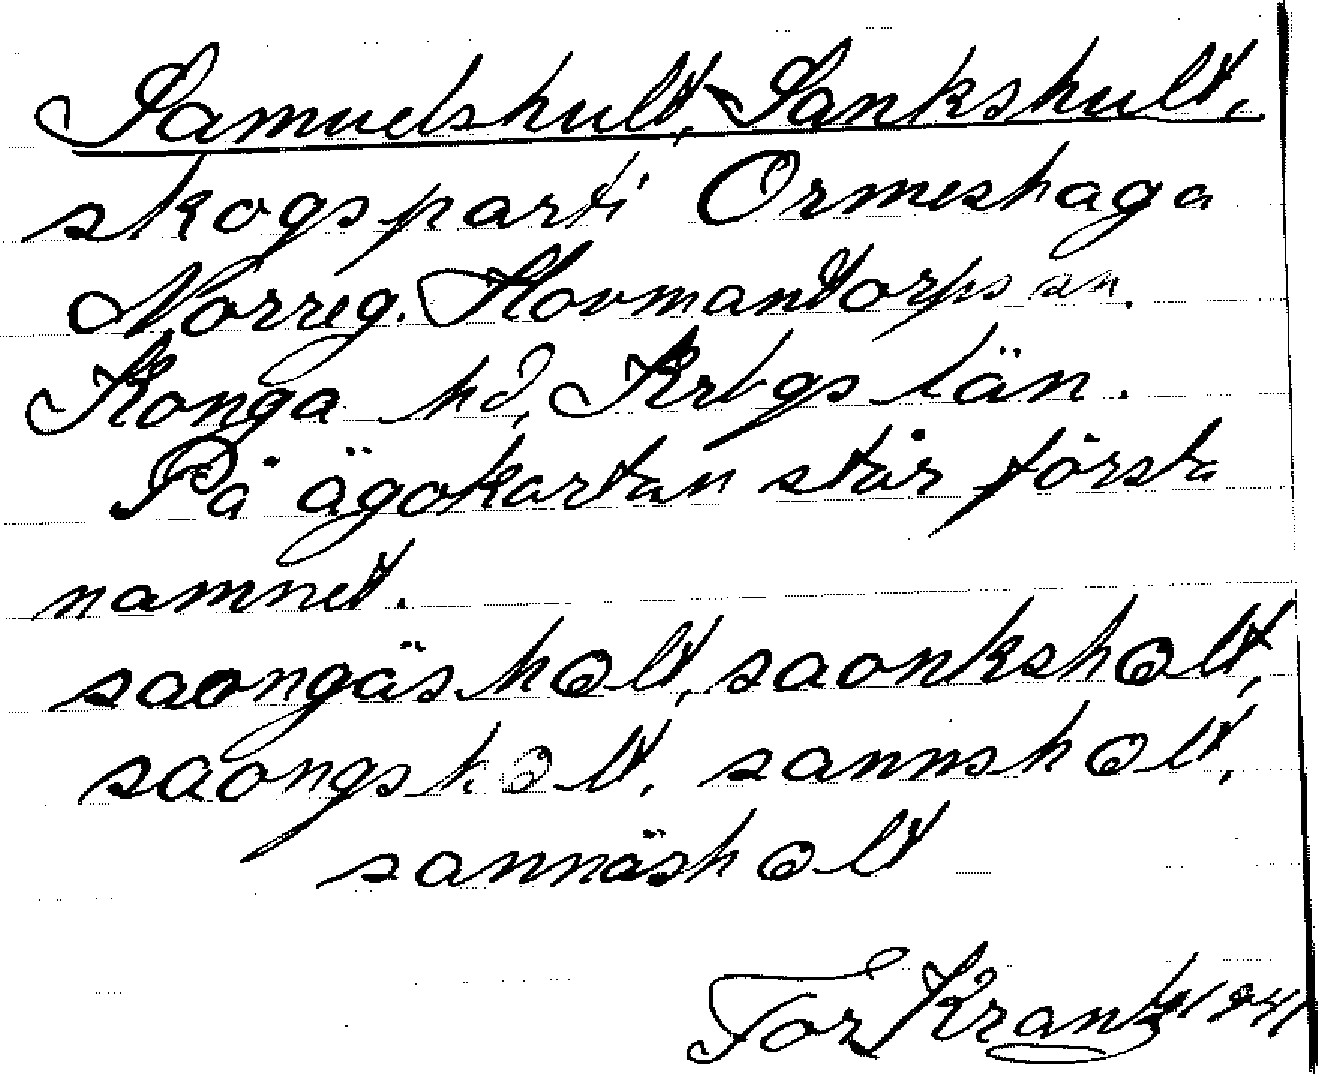 Samuelshult, Sankshult,
skogsparti Ormeshaga
Norreg. Hovmantorps sn.
Konga hd, Krbgs län.
På ägokartan står första
namnet.
saongäshɷlt, saonkshɷlt,
saongshɷlt, sannshɷlt,
sannäshɷlt
Tor Krantz 1941